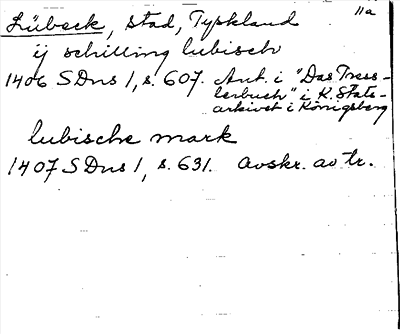 Lübeck, stad, Tyskland
11a
ij schilling lubisch
1406 SDns 1, s. 607. Ant. i "Das Tress-
lerbuch" i K. Stats-
arkivet i Königsberg
lubische mark
1407 SDns 1, s. 631. Avskr. av tr.